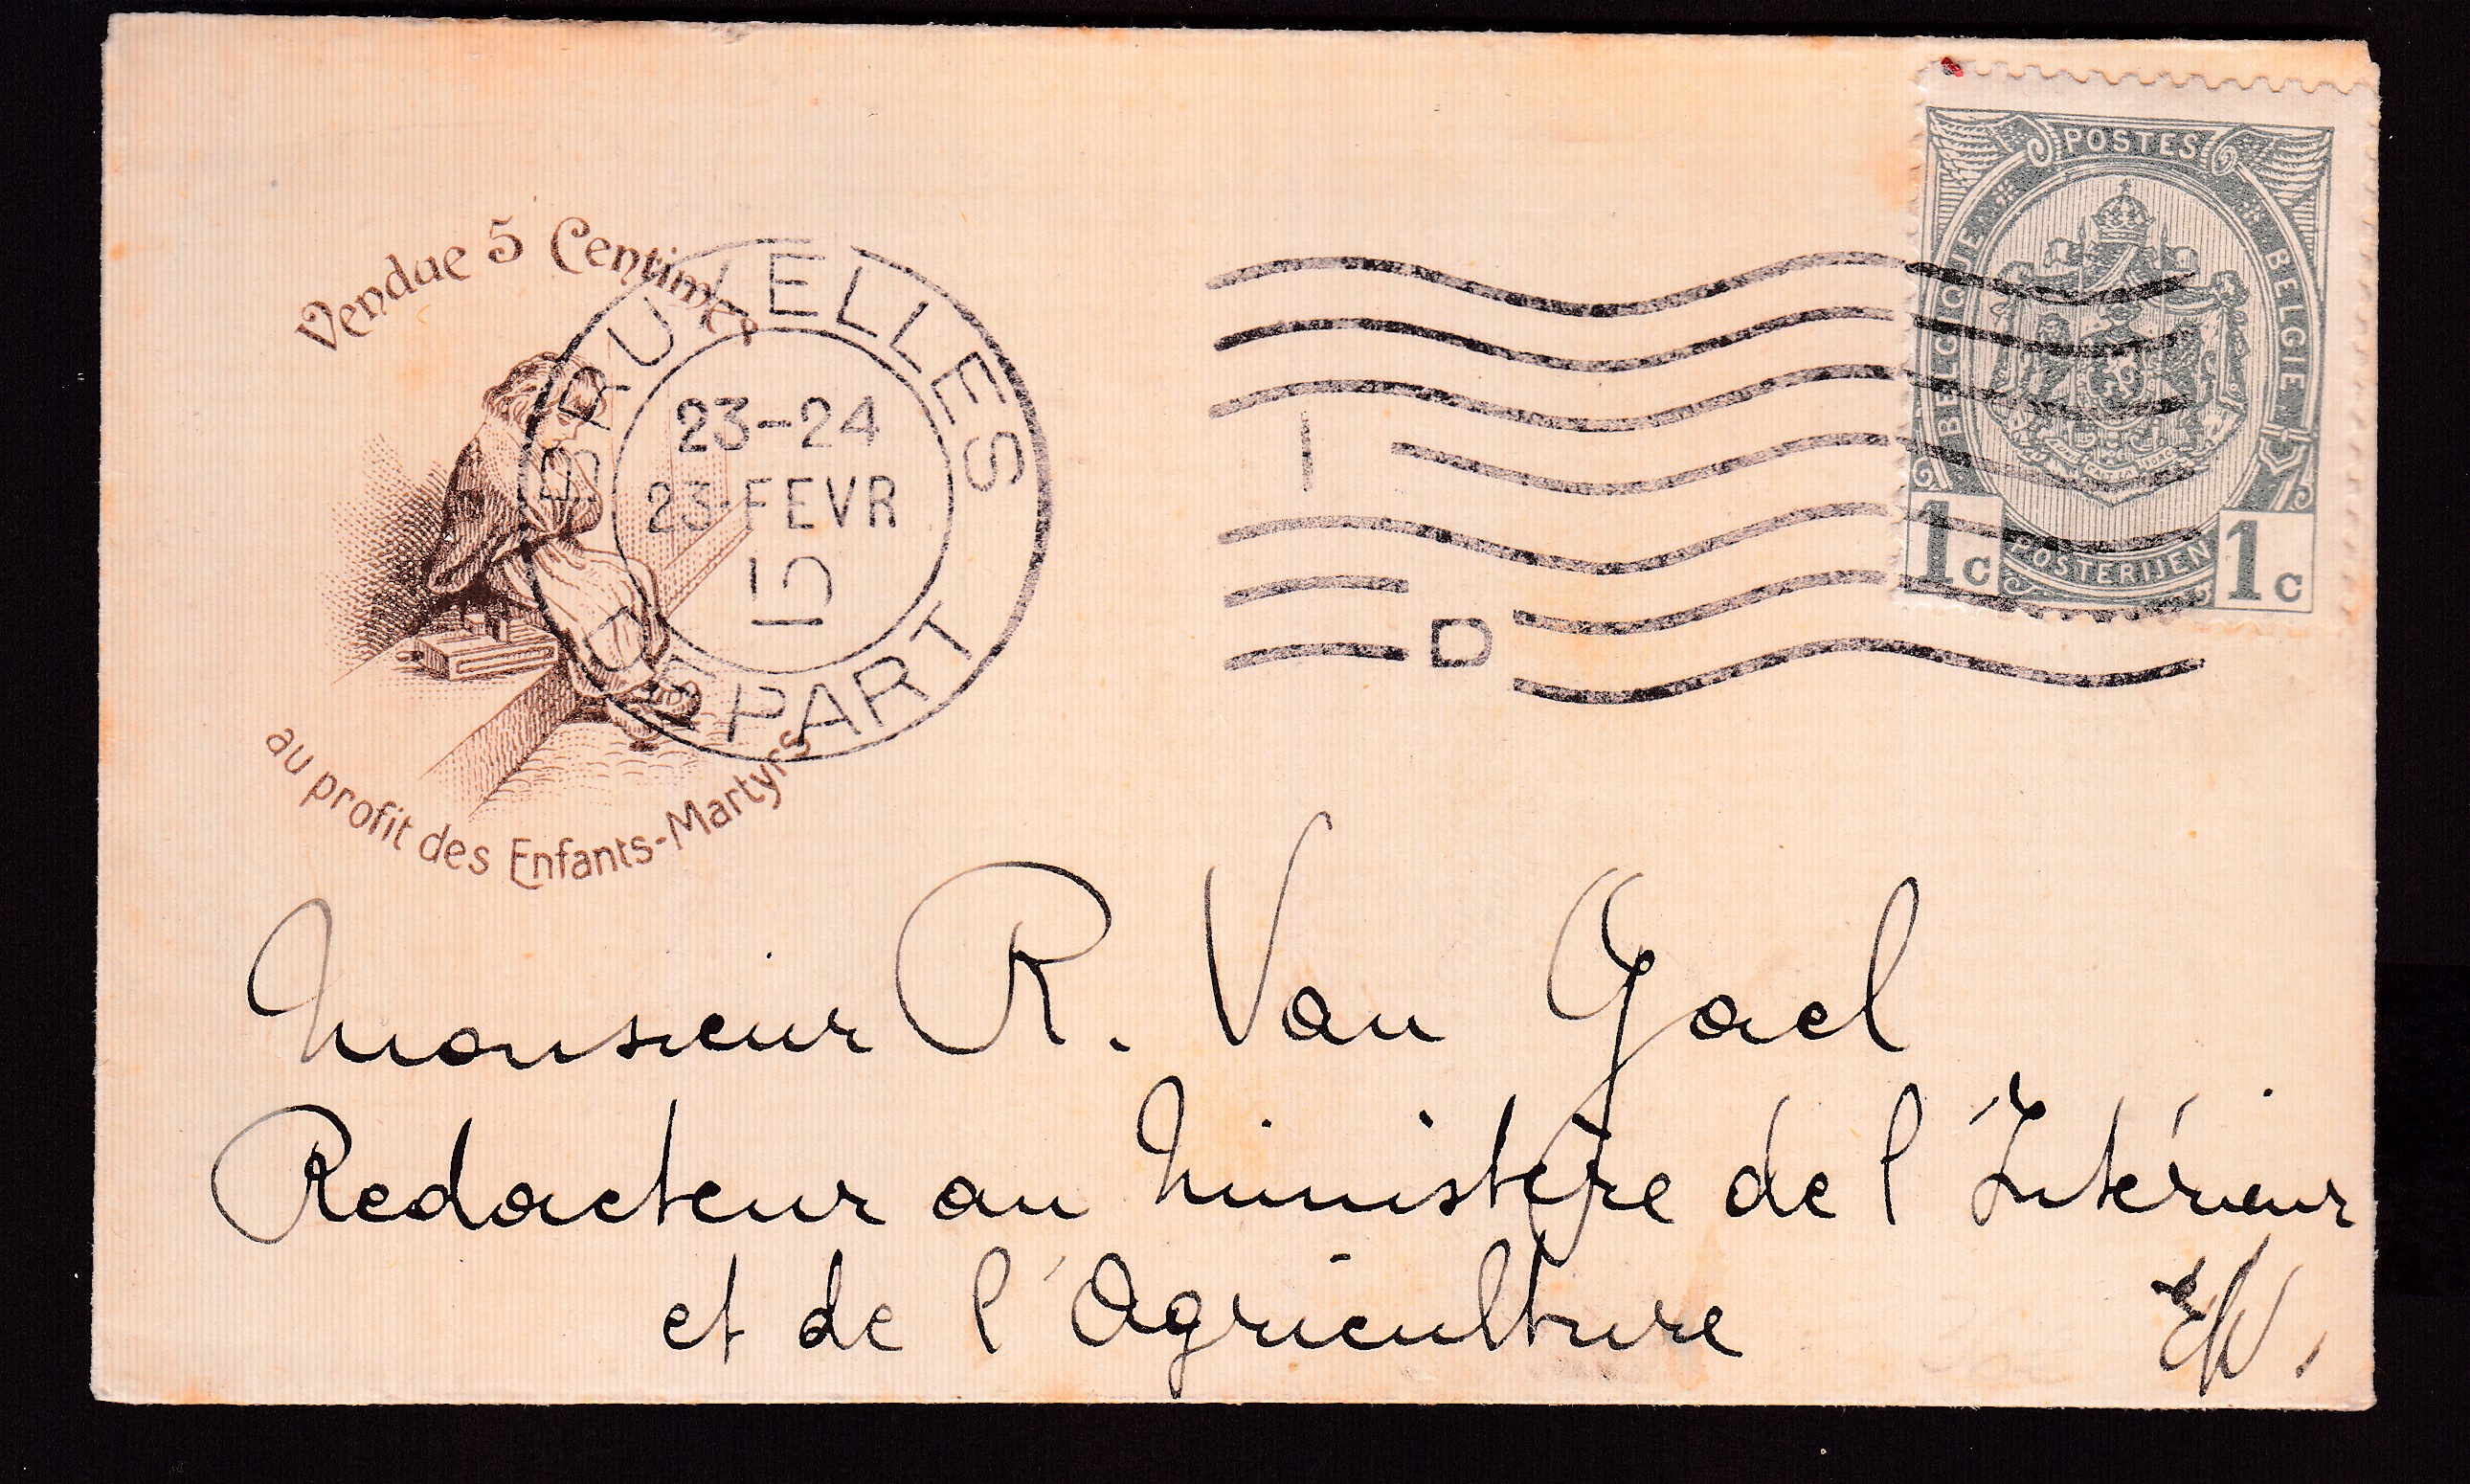 Vendue 5 Centimes
au profit des Enfants-Martyrs
BRUXELLES
23-24
23·FEVR
DEPART
I
D
POSTES
BELGIQUE
BELGIE
POSTERIJEN
1c
1c
Monsieur R. Van Gael
Redacteur au Ministère de l'Intérieur
et de l'Agriculture
EV.